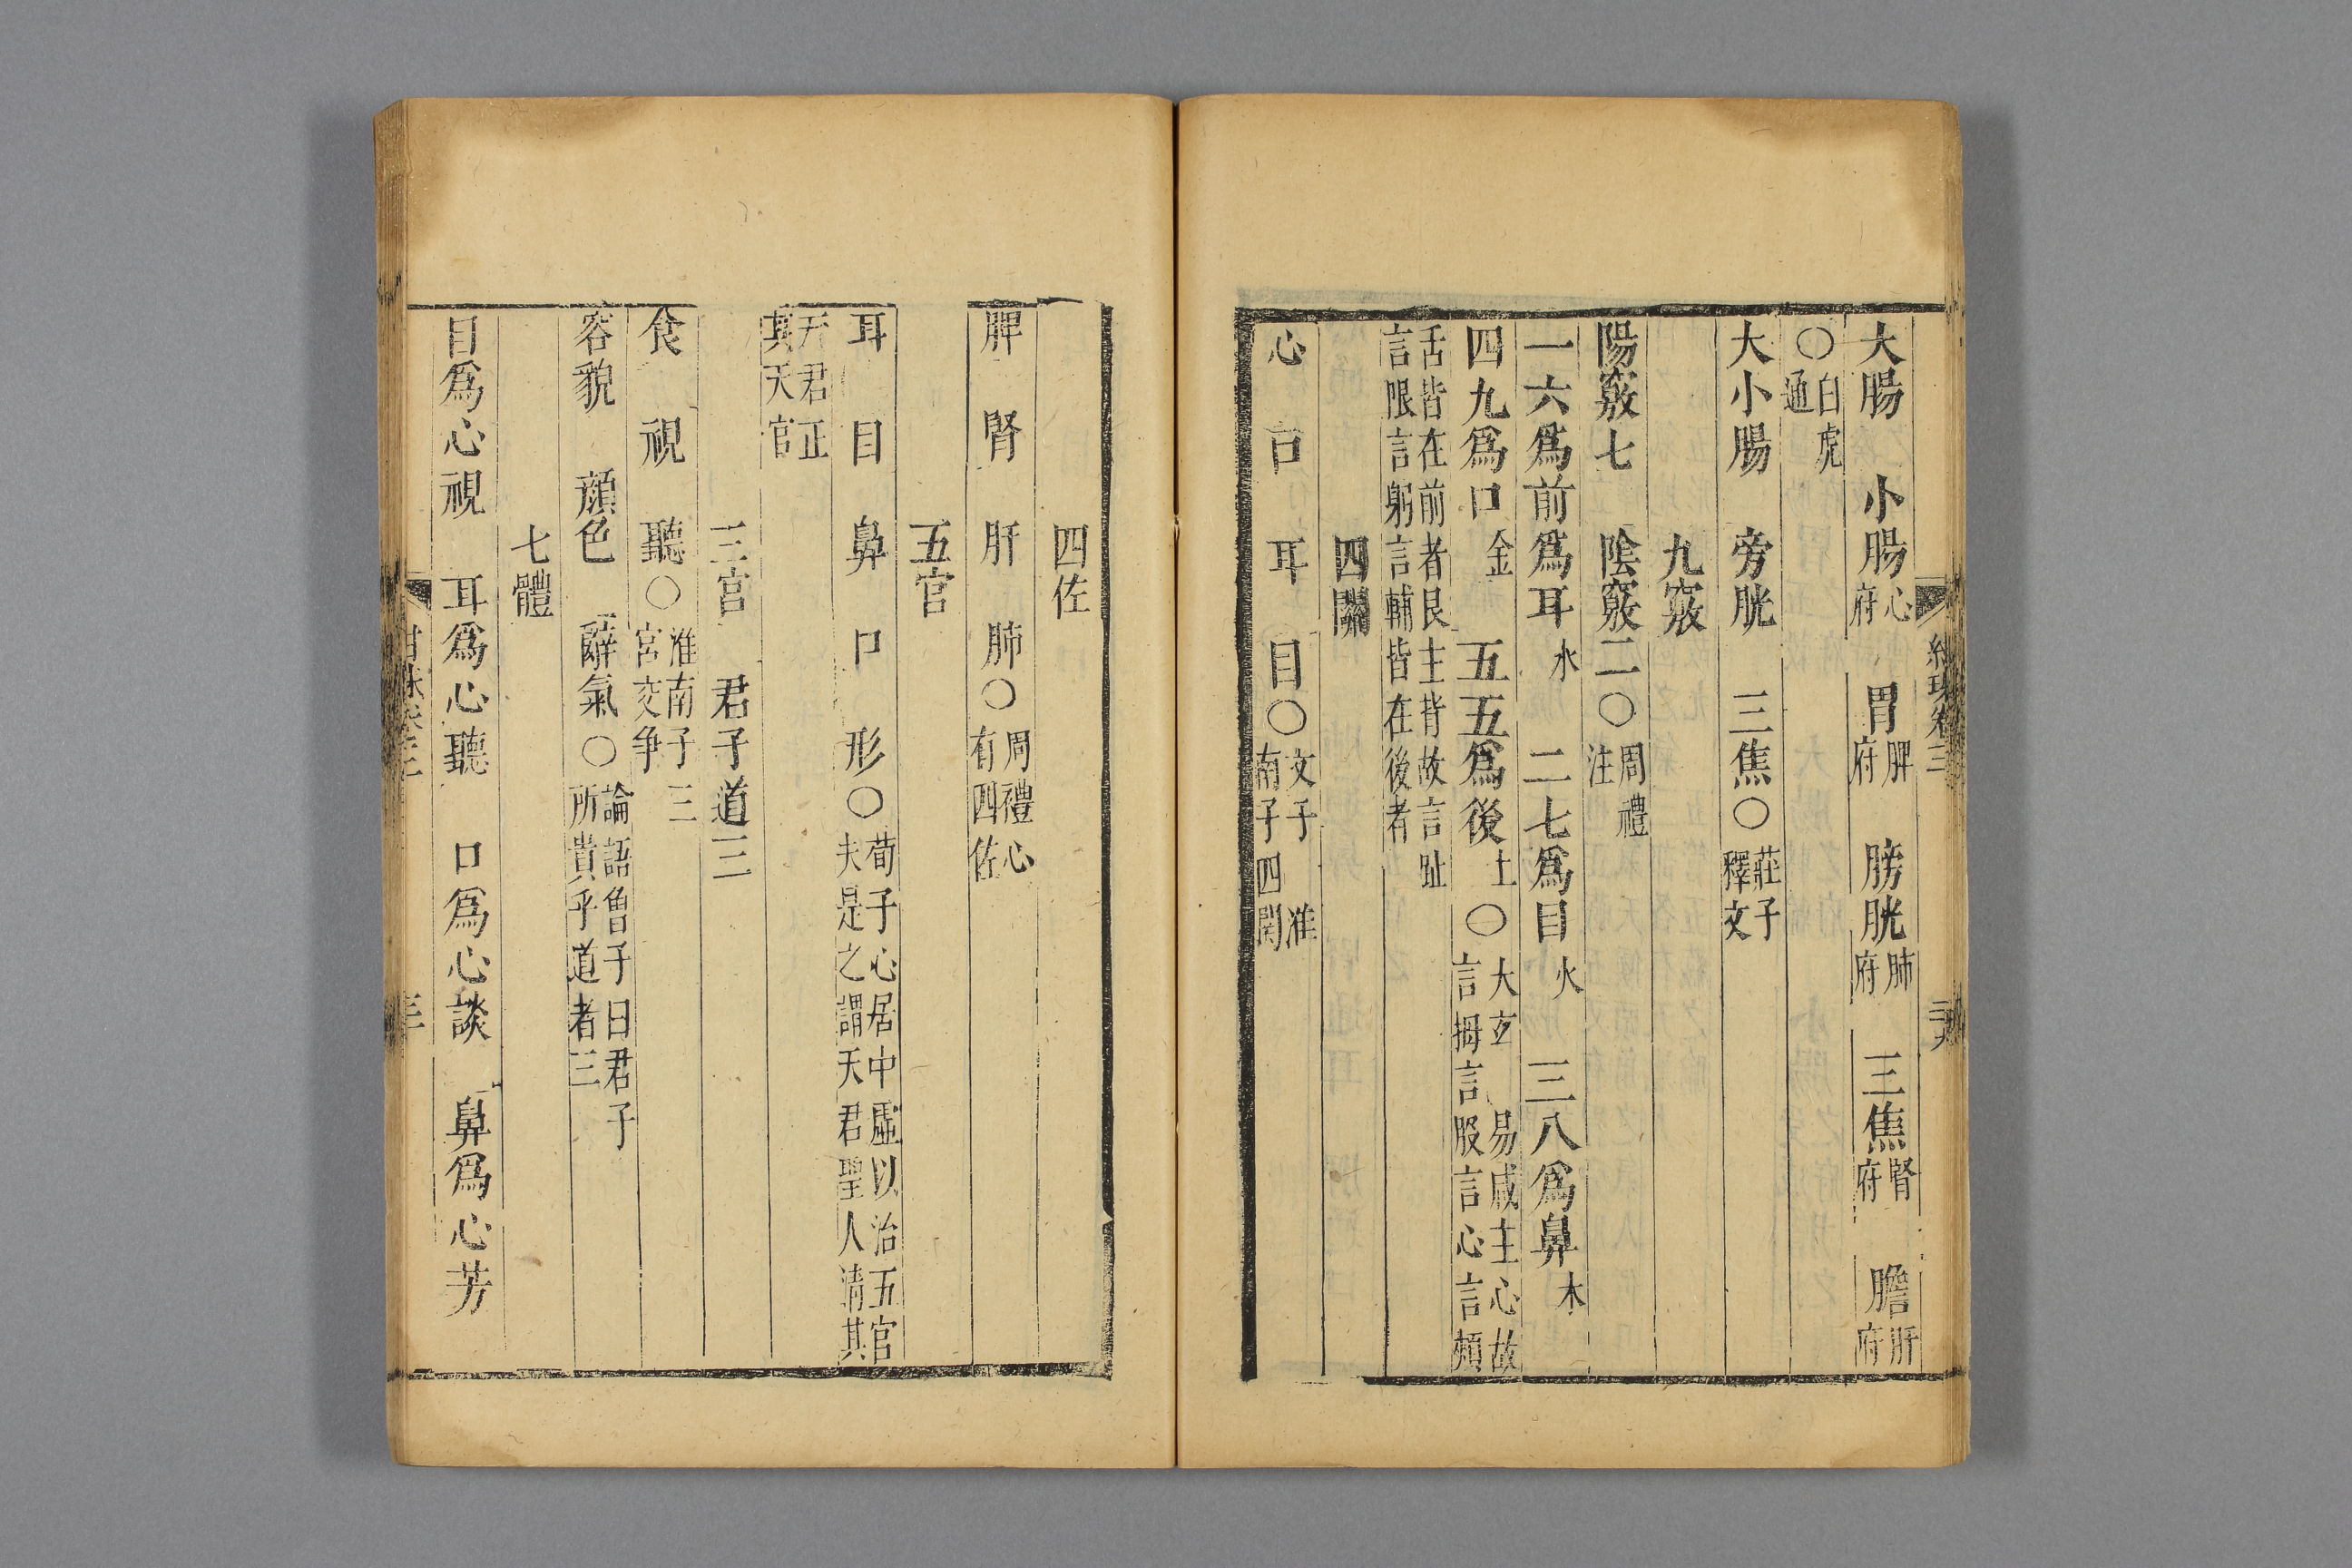 大腸 小腸心府 胃脾府 膀胱肺府 三焦腎府 膽肝府
○白虎通
大小腸 旁胱 三焦○莊子釋文
九竅
陽竅七 陰竅二○周禮注
一六爲前爲耳水 二七爲目火 三八爲鼻木
四九爲口金 五五爲後土○大玄 易咸主心故言拇言股言心言頰
舌皆在前者艮主背故言趾言限言躬言輔皆在後者
四關
心 口 耳 目○文子 淮南子四關
四佐
脾 腎 肝 肺○周禮心有四佐
五官
耳 目 鼻 口 形○荀子心居中虛以治五官夫是之謂天君聖人清其
天君正其天官
三官 君子道三
食 視 聽○淮南子三官交争
容貌 顔色 辭氣○論語曾子曰君子所貴乎道者三
七體
目爲心視 耳爲心聽 口爲心談 鼻爲心芳